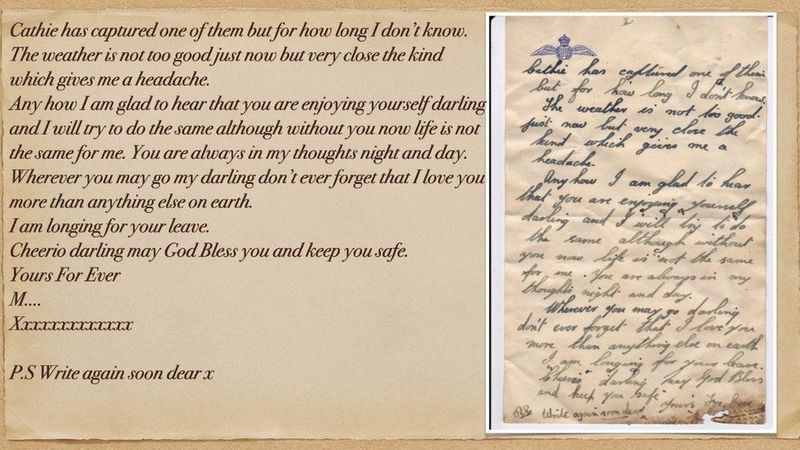 Cathie has captured one of them but for how long I don't know.
The weather is not too good just now but very close the kind
which gives me a headache.
Any how I am glad to hear that you are enjoying yourself darling
and I will try to do the same although without you now life is not
the same for me. You are always in my thoughts night and day.
Wherever you may go my darling don't ever forget that I love you
more than anything else on earth.
I am longing for your leave.
Cheerio darling may God Bless you and keep you safe.
Yours For Ever
M....
Xxxxxxxxxxxxxx
P.S Write again soon dear x
Cathie has captured one of them
but for how long I don't know.
The weather is not too good
just now but very close the
kind which gives me a
headache.
Anyhow I am glad to hear
that you are enjoying yourself
darling and I will try to do
the same although without
you now life is not the same
for me. You are always in my
thoughts night and day.
Wherever you may go darling
don't ever forget that I love you
more than anything else on earth
I am longing for your leave.
Cheerio darling may God Bless
and keep you safe Yours For
Write again soon dear